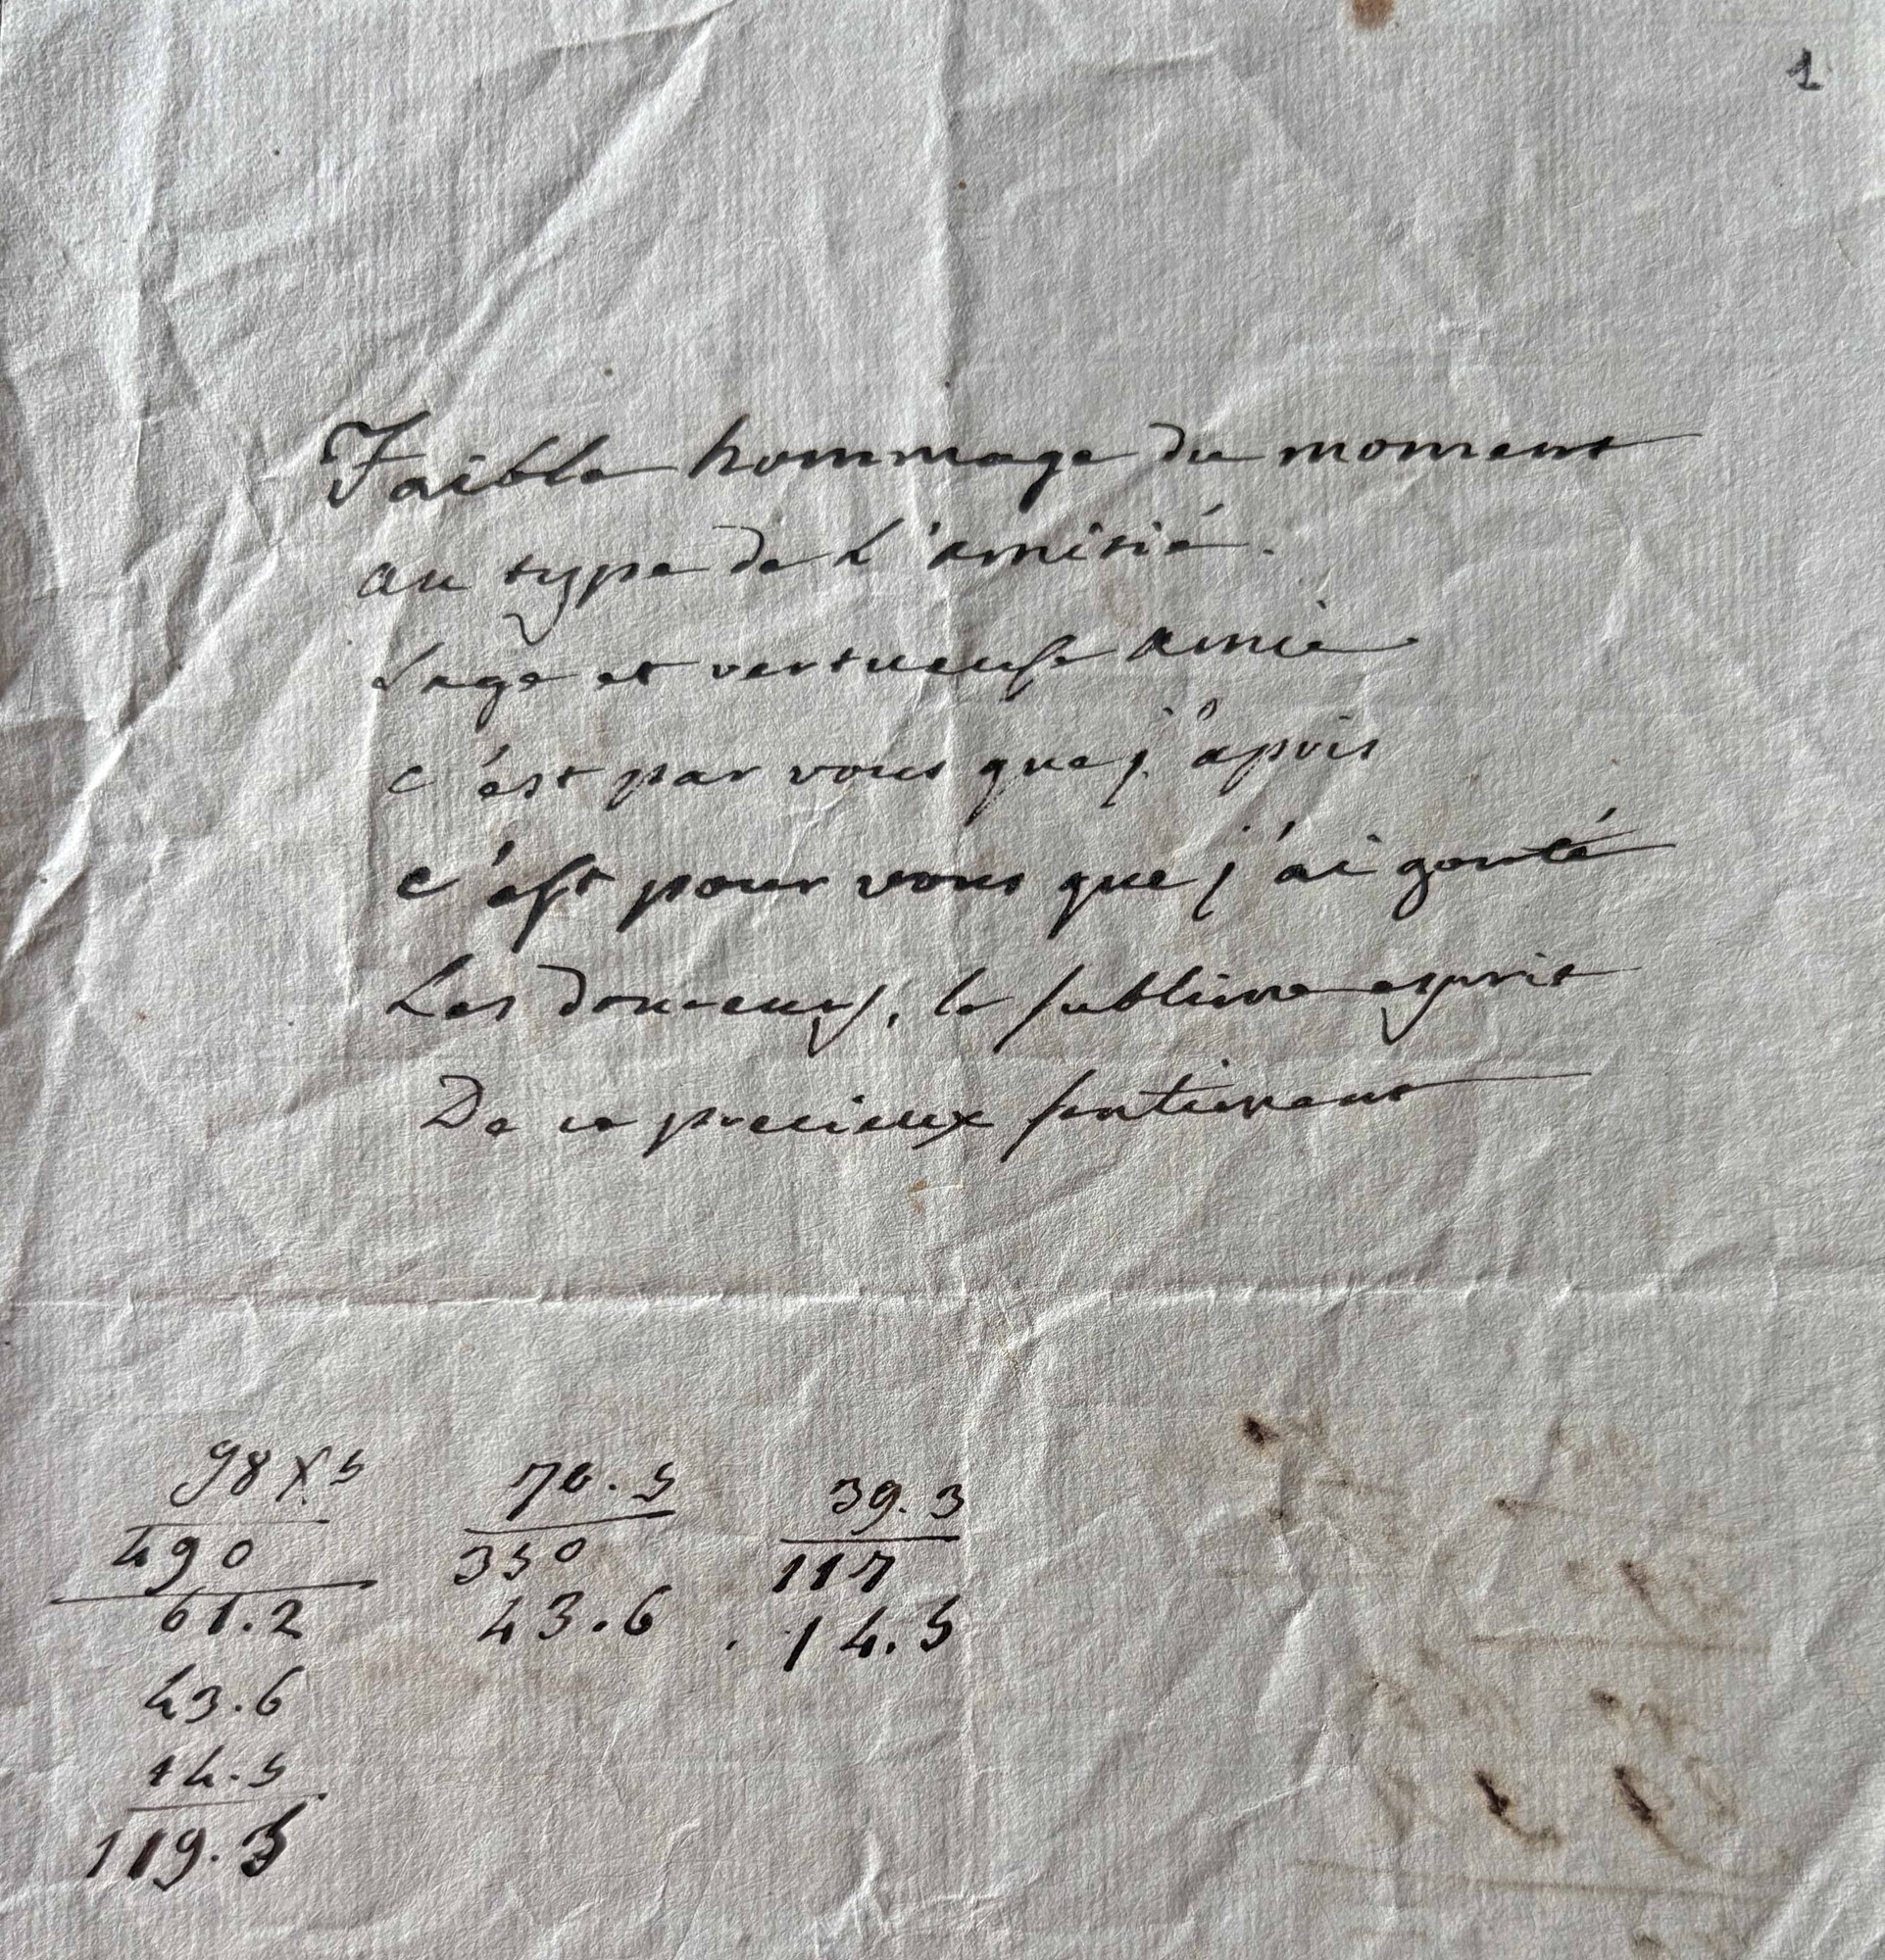 1
Faible hommage du moment
au type de L'amitié.
Sage et vertueuse amie
c'est par vous que j'apris
c'est pour vous que j'ai gouté
Les douceurs, le sublime esprit
De ce precieux sentiment
98 x 5 70. 5 39. 3
490 350 117
61.2 43.6 . 14.5
43.6
14.5
119.5